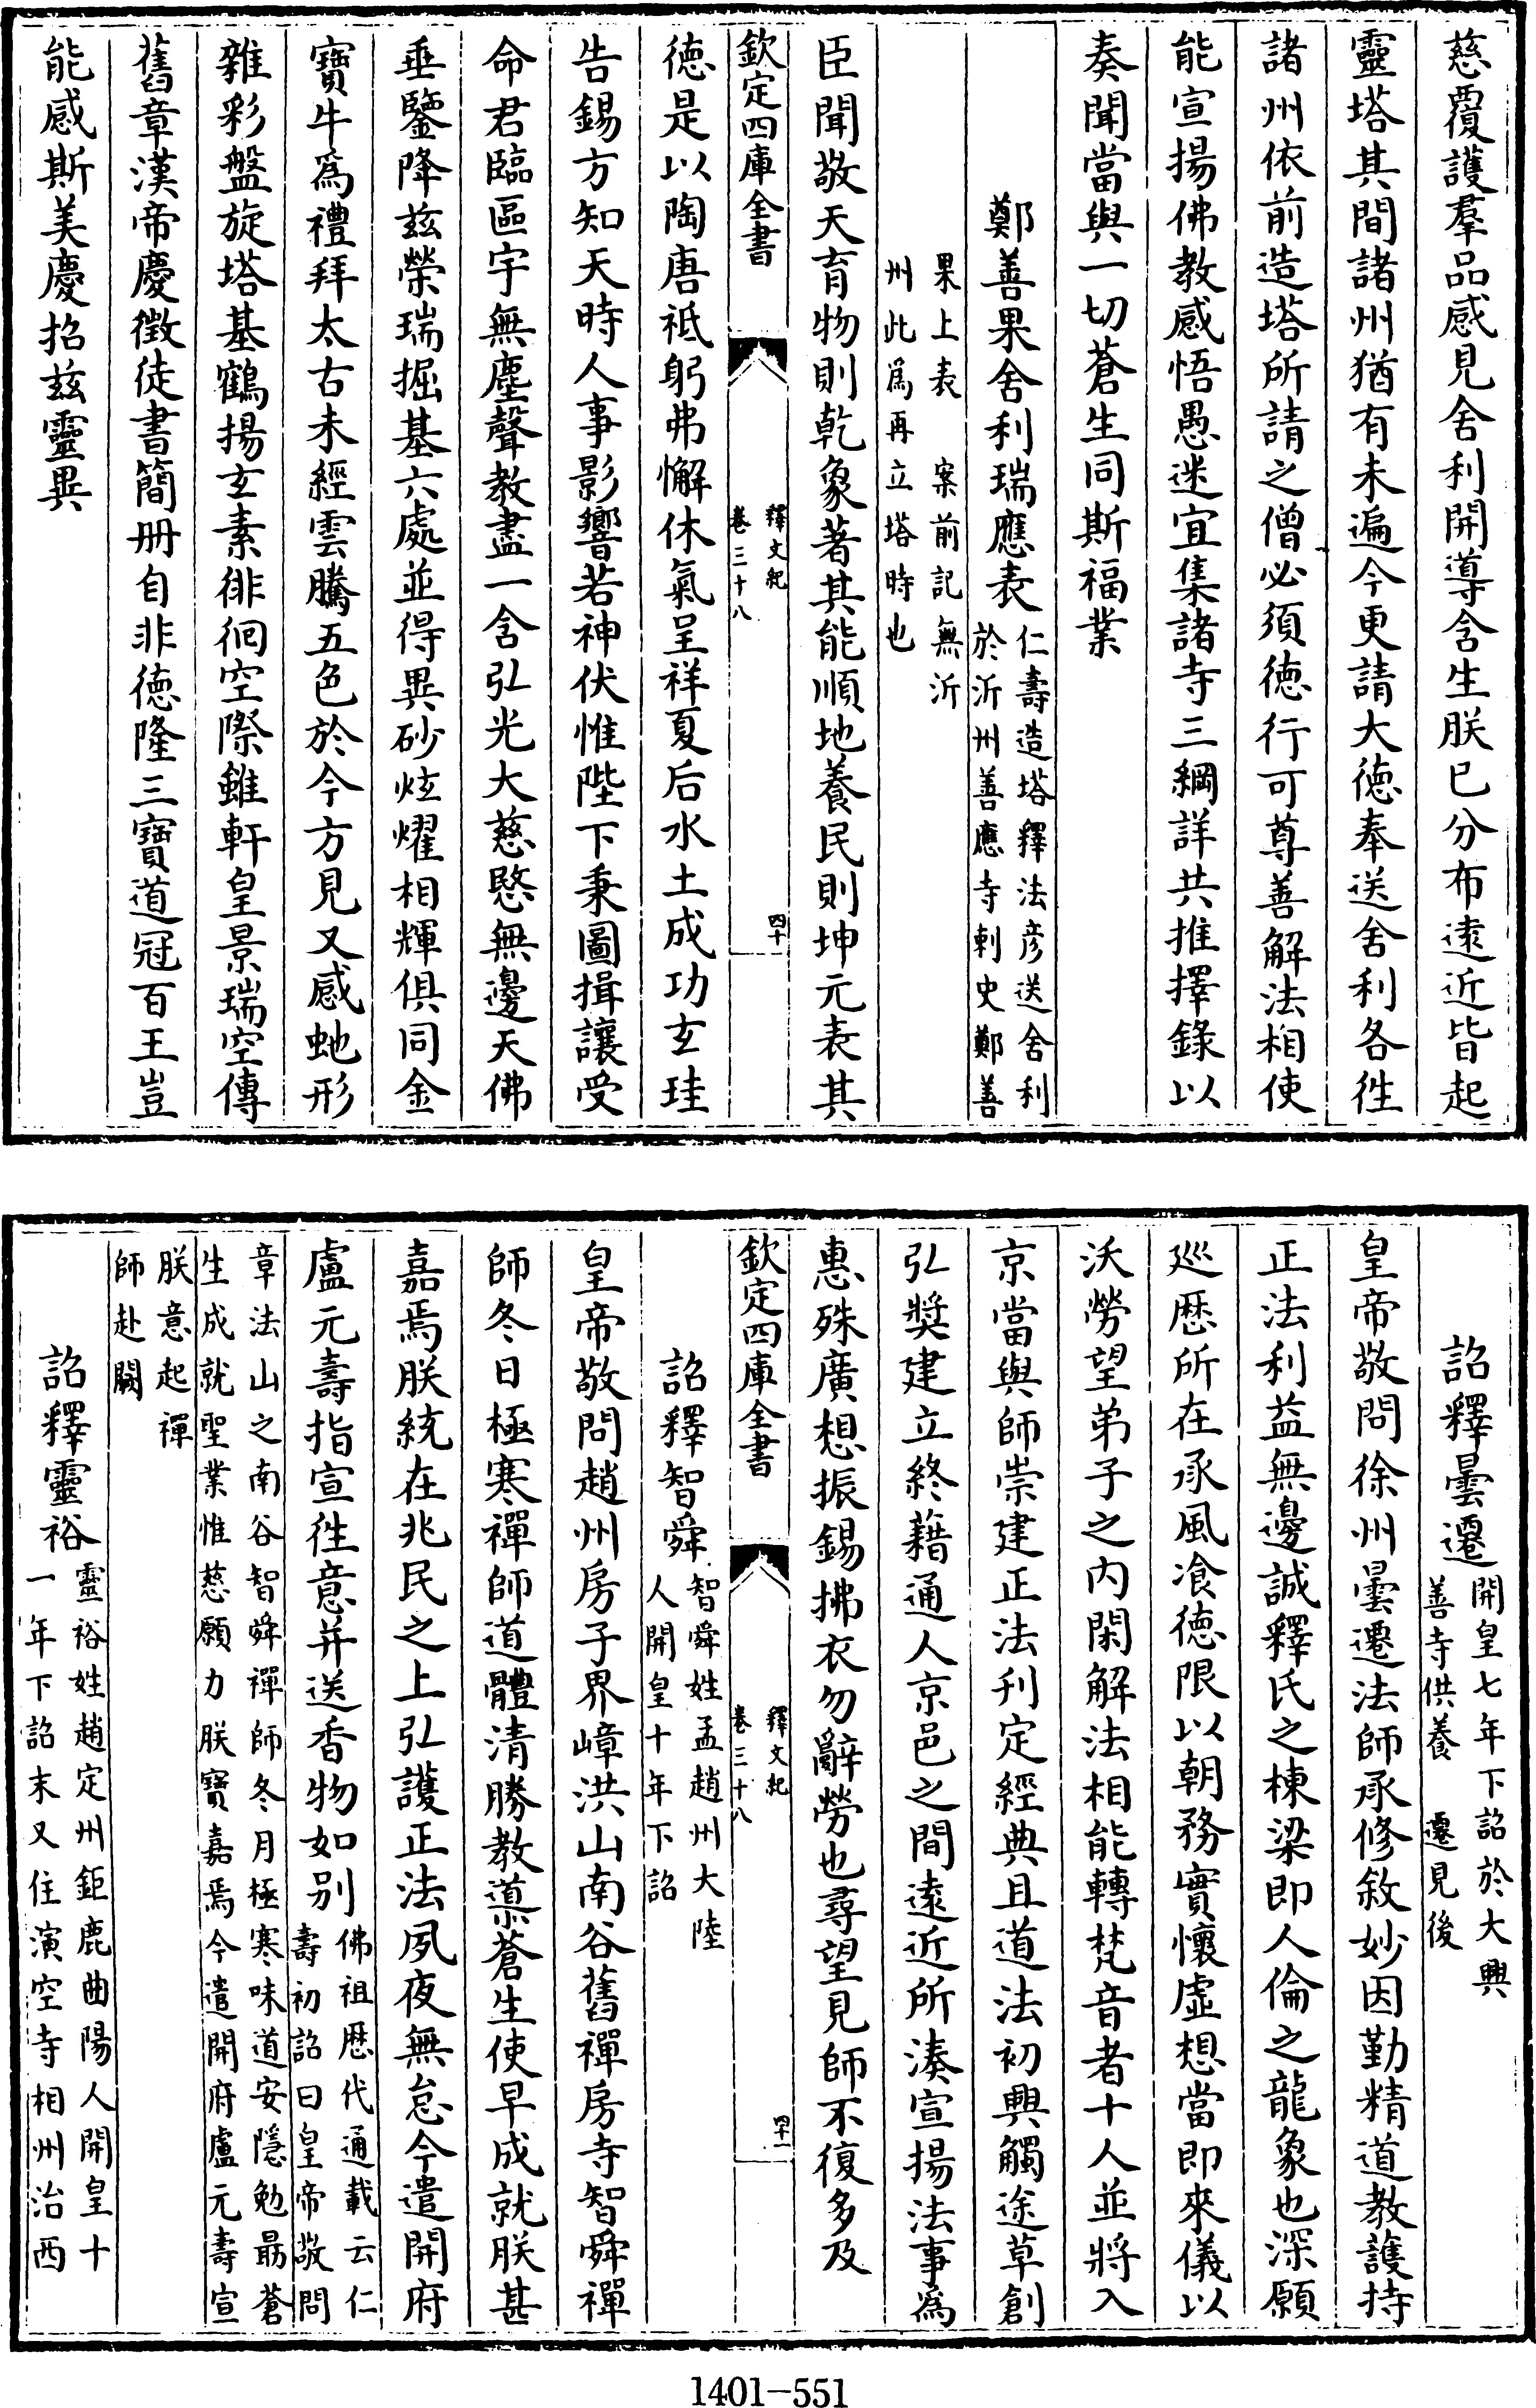 慈覆護羣品感見舍利開導含生朕已分布遠近皆起
靈塔其間諸州猶有未遍今更請大德奉送舍利各往
諸州依前造塔所請之僧必須德行可尊善解法相使
能宣揚佛教感悟愚迷宜集諸寺三綱詳共推擇錄以
奏聞當與一切蒼生同斯福業
鄭善果舍利瑞應表仁壽造塔釋法彦送舍利
於沂州善應寺刺史鄭善
果上表 案前記無沂
州此為再立塔時也
臣聞敬天育物則乾象著其能順地養民則坤元表其
欽定四庫全書 釋文紀 卷三十八 四十
德是以陶唐祗躬弗懈休氣呈祥夏后水土成功玄珪
告錫方知天時人事影響若神伏惟陛下秉圖揖讓受
命君臨區宇無塵聲教盡一含弘光大慈愍無邊天佛
垂鑒降兹榮瑞掘基六處並得異砂炫燿相輝俱同金
寶牛爲禮拜太古未經雲騰五色於今方見又感虵形
雜彩盤旋塔基鶴揚玄素徘徊空際雖軒皇景瑞空傳
舊章漢帝慶徵徒書簡冊自非德隆三寶道冠百王豈
能感斯美慶招兹靈異
詔釋曇遷開皇七年下詔於大興
善寺供養 遷見後
皇帝敬問徐州曇遷法師承修敘妙因勤精道教護持
正法利益無邊誠釋氏之棟梁即人倫之龍象也深願
巡歷所在承風飡德限以朝務實懷虛想當即來儀以
沃勞望弟子之内閑解法相能轉梵音者十人並將入
京當與師崇建正法刊定經典且道法初興觸途草創
弘奬建立終藉通人京邑之間遠近所湊宣揚法事爲
惠殊廣想振錫拂衣勿辭勞也尋望見師不復多及
欽定四庫全書 釋文紀 卷三十八 四十一
詔釋智舜智舜姓孟趙州大陸
人開皇十年下詔
皇帝敬問趙州房子界嶂洪山南谷舊禪房寺智舜禪
師冬日極寒禪師道體清勝教導蒼生使早成就朕甚
嘉焉朕統在兆民之上弘護正法夙夜無怠今遣開府
盧元壽指宣往意并送香物如别佛祖歷代通載云仁
壽初詔曰皇帝敬問
章法山之南谷智舜禪師冬月極寒味道安隱勉最蒼
生成就聖業惟慈願力朕寶嘉焉今遣開府盧元壽宣
朕意起禪
師赴闕
詔釋靈裕靈裕姓趙定州鉅鹿曲陽人開皇十
一年下詔末又住演空寺相州治西
1401-551